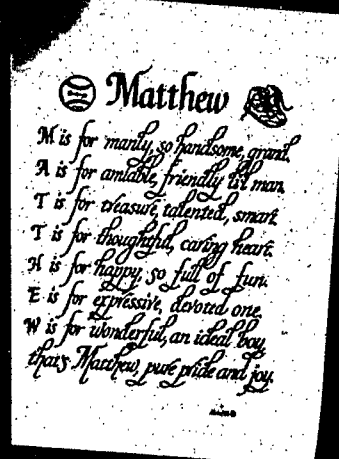 Matthew
M is for manly, so handsome, grand.
A is for amiable, friendly lil' man.
T is for treasure, talented, smart.
T is for thoughtful, caring heart.
H is for happy, so full of fun.
E is for expressive, devoted one.
W is for wonderful, an ideal boy,
that's Matthew, pure pride and joy.